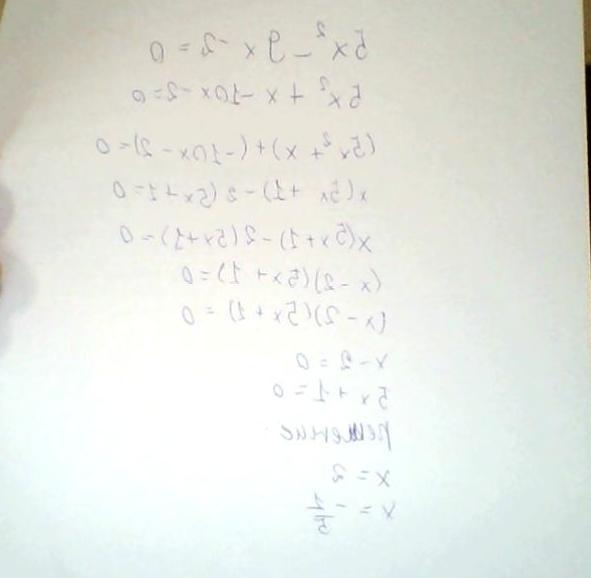 5x² - 9x - 2 = 0
5x² + x - 10x - 2 = 0
(5x² + x) + (-10x - 2) = 0
x(5x + 1) - 2(5x + 1 = 0
x(5x + 1) - 2(5x + 1) = 0
(x - 2)(5x + 1) = 0
(x - 2)(5x + 1) = 0
x - 2 = 0
5x + 1 = 0
Решение
x = 2
x = - 1/5